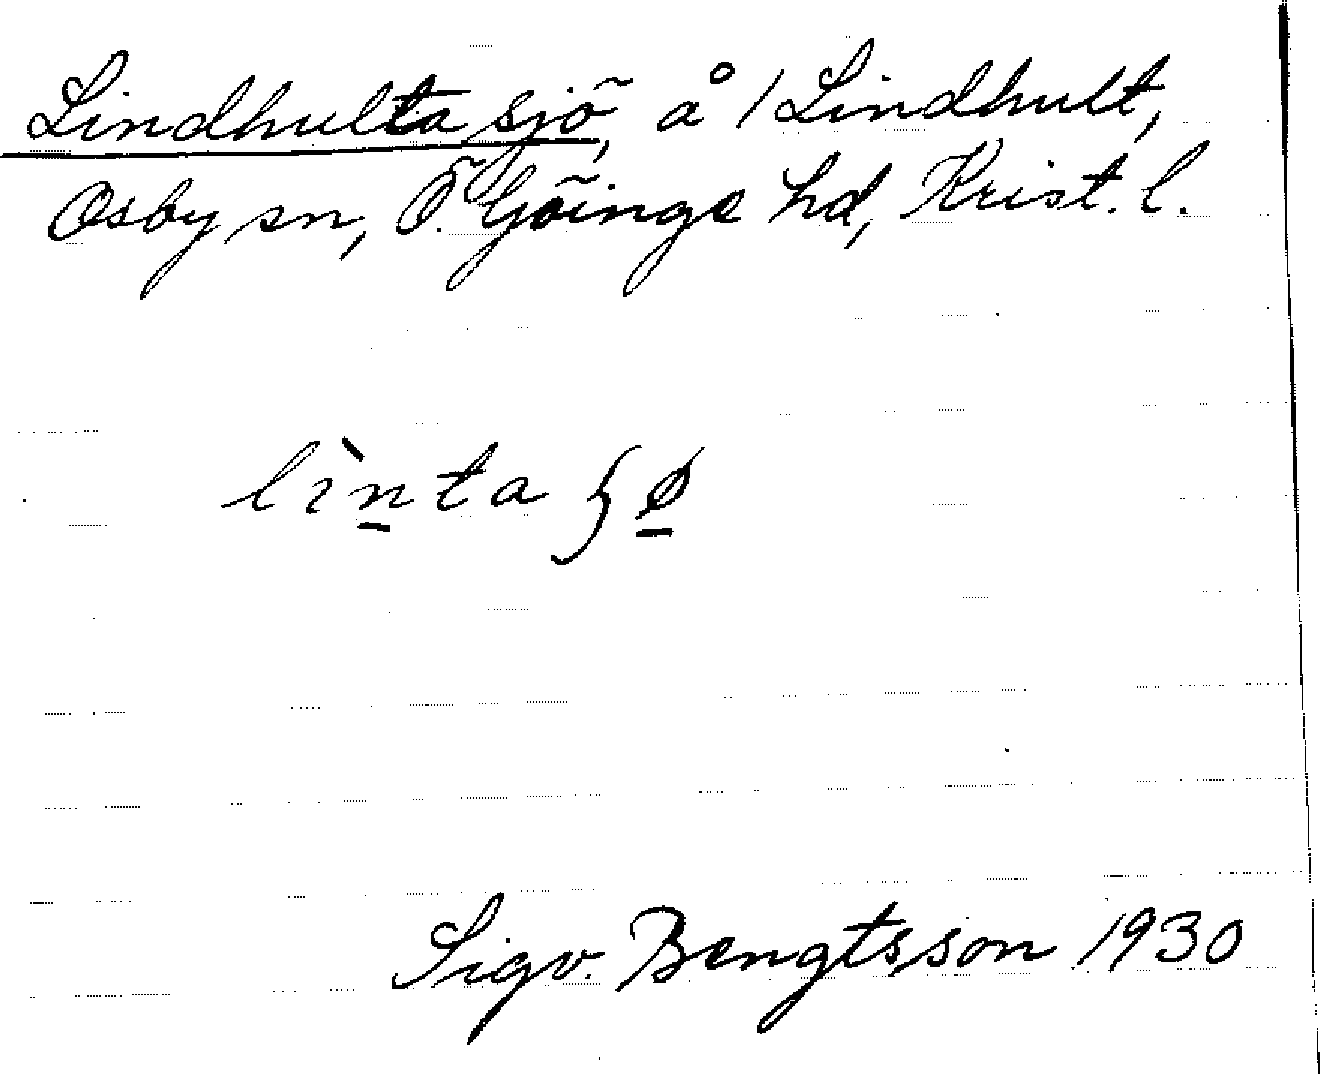 Lindhulta sjö, å 1 Lindhult,
Osby sn, Ö. Göinge hd, Krist. l.
lìn̲ta ʃø̲
Sigv. Bengtsson 1930